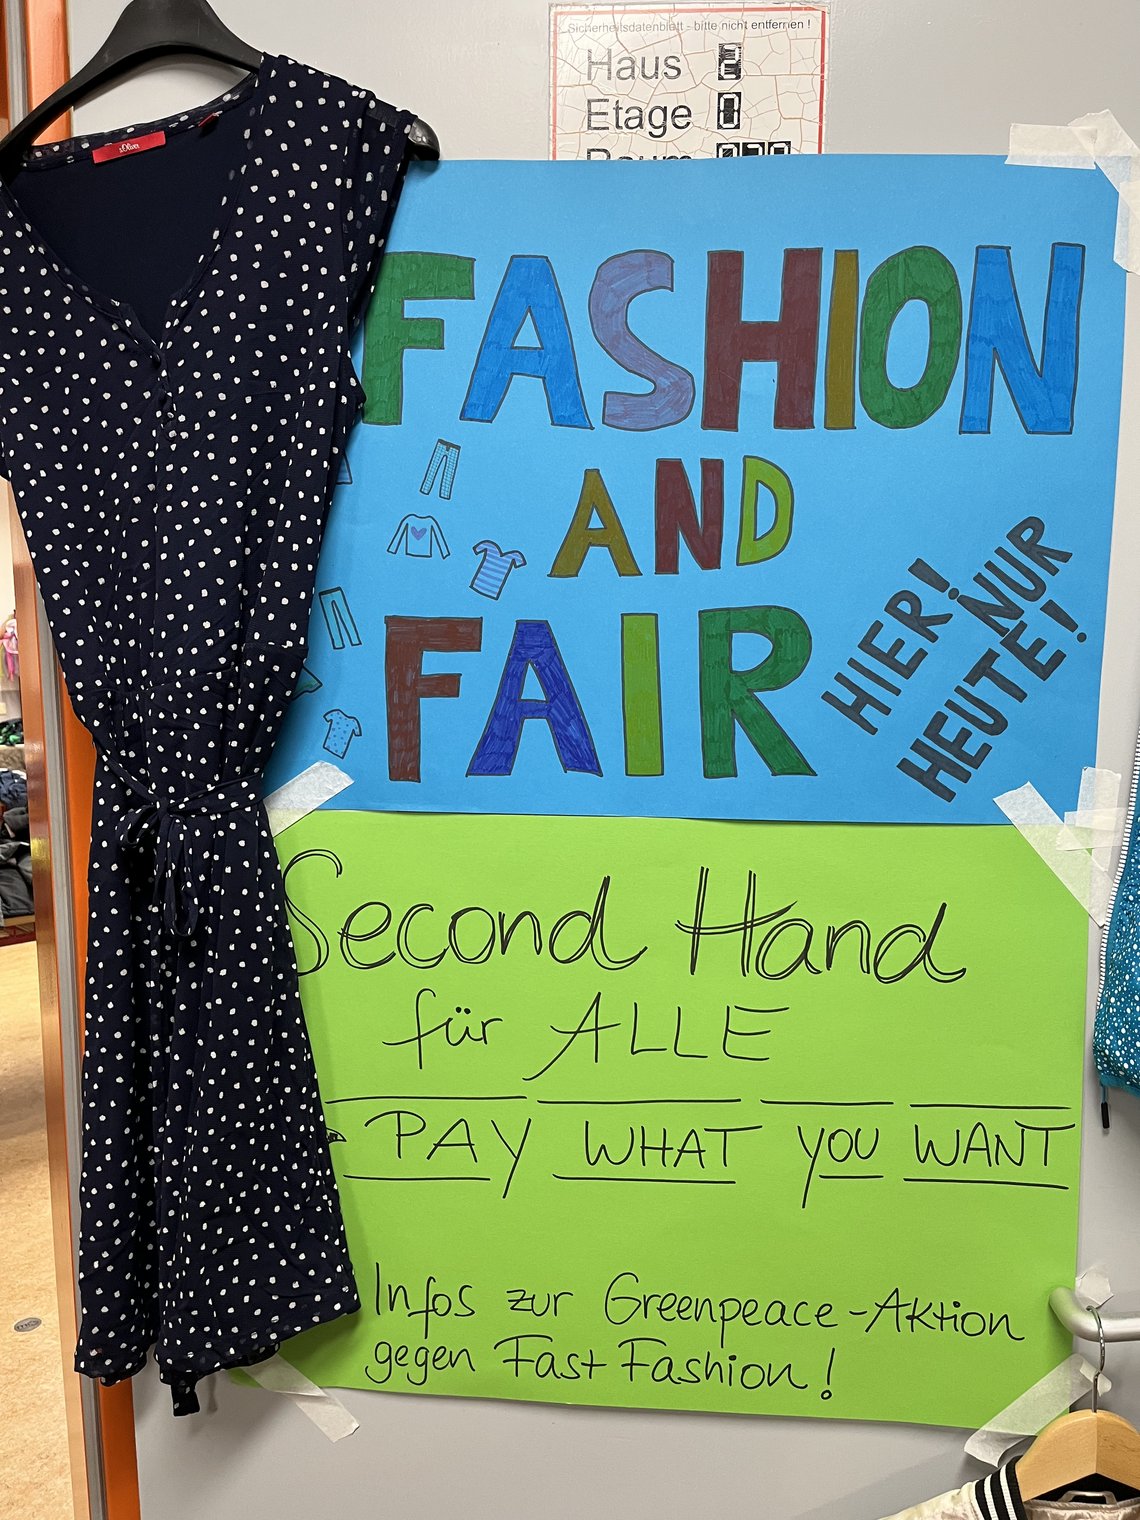 Sicherheitsdatenblatt - bitte nicht entfernen !
Haus 2
Etage 0
Raum 070
s.Oliver
FASHION
AND
FAIR
HIER! NUR
HEUTE!
Second Hand
für ALLE
PAY WHAT YOU WANT
Infos zur Greenpeace-Aktion
gegen Fast Fashion!